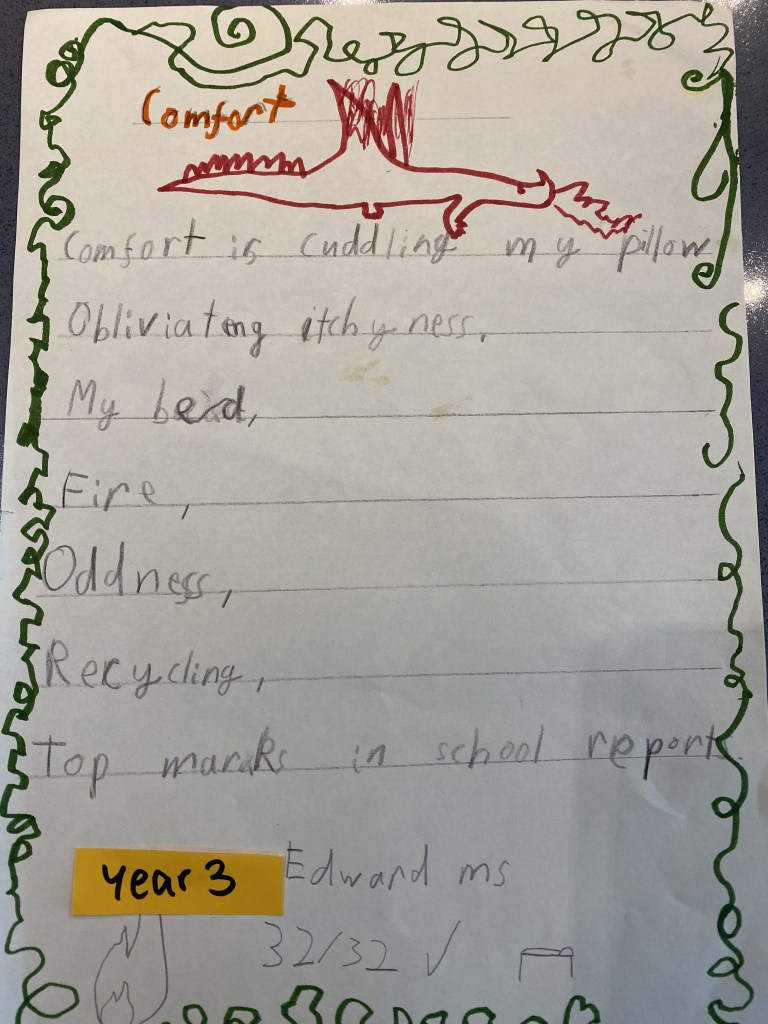 Comfort
Comfort is cuddling my pillow
Obliviating itchyness,
My bed,
Fire,
Oddness,
Recycling,
Top marks in school reports.
Year 3
Edward ms
32/32 ✓